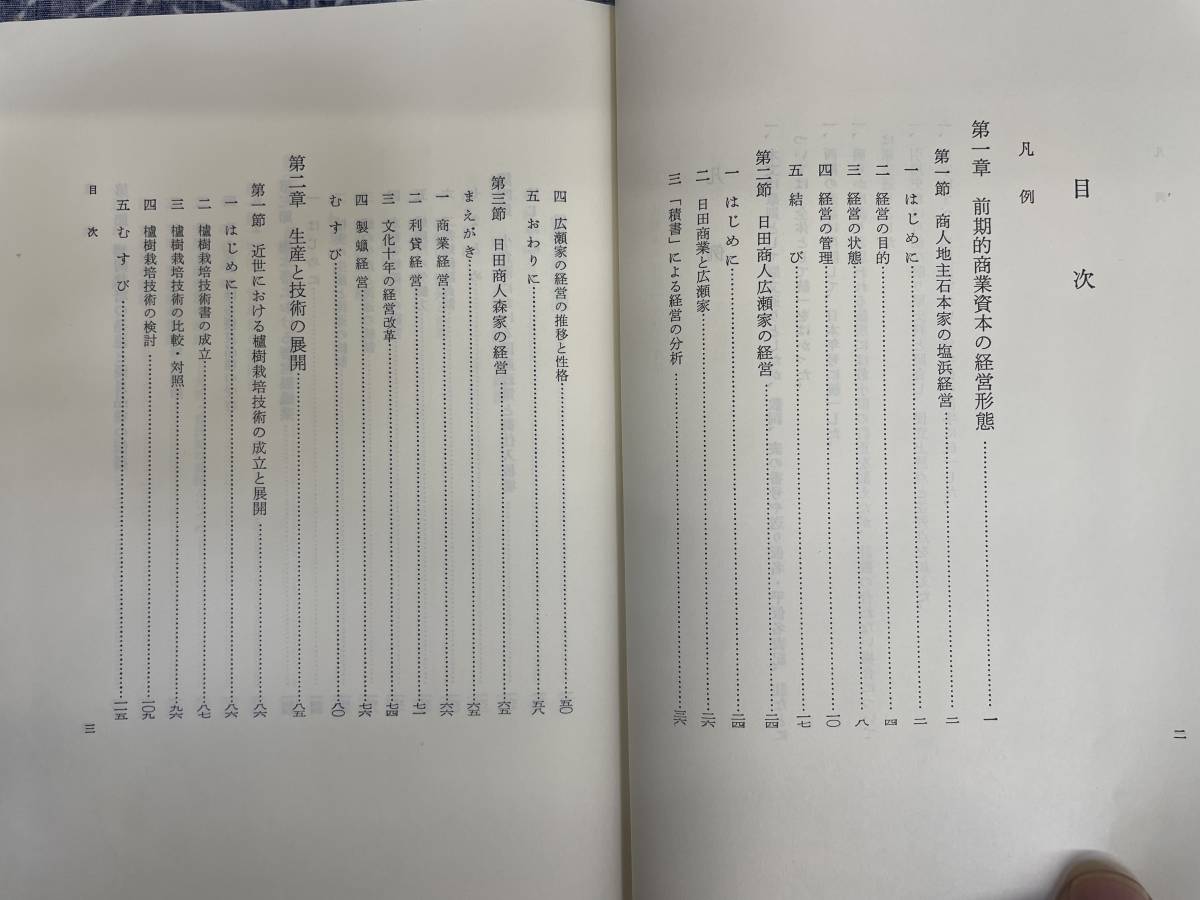 目次
凡例
第一章 前期的商業資本の経営形態…一
第一節 商人地主石本家の塩浜経営…二
一 はじめに…二
二 経営の目的…四
三 経営の状態…八
四 経営の管理…一〇
五 結び…一七
第二節 日田商人広瀬家の経営…二四
一 はじめに…二四
二 日田商業と広瀬家…二六
三 「積書」による経営の分析…三六
二
四 広瀬家の経営の推移と性格…五〇
五 おわりに…五八
第三節 日田商人森家の経営…六五
まえがき…六五
一 商業経営…六六
二 利貸経営…七一
三 文化十年の経営改革…七四
四 製蝋経営…七六
むすび…八〇
第二章 生産と技術の展開…八五
第一節 近世における櫨樹栽培技術の成立と展開…八六
一 はじめに…八六
二 櫨樹栽培技術書の成立…八七
三 櫨樹栽培技術の比較・対照…九六
四 櫨樹栽培技術の検討…一〇九
五 むすび…一一五
目次
三